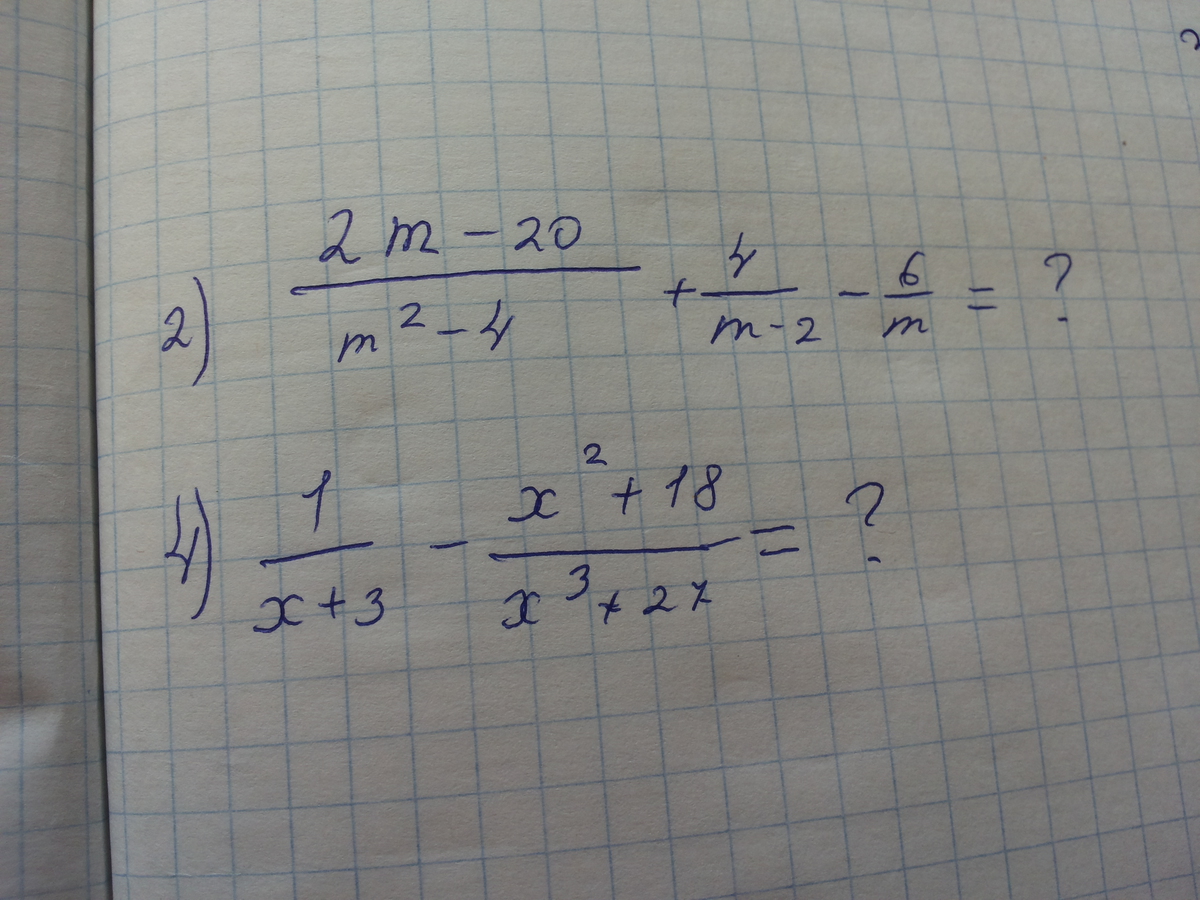 2) (2m - 20)/(m² - 4) + 4/(m - 2) - 6/m = ?
4) 1/(x + 3) - (x² + 18)/(x³ + 27) = ?